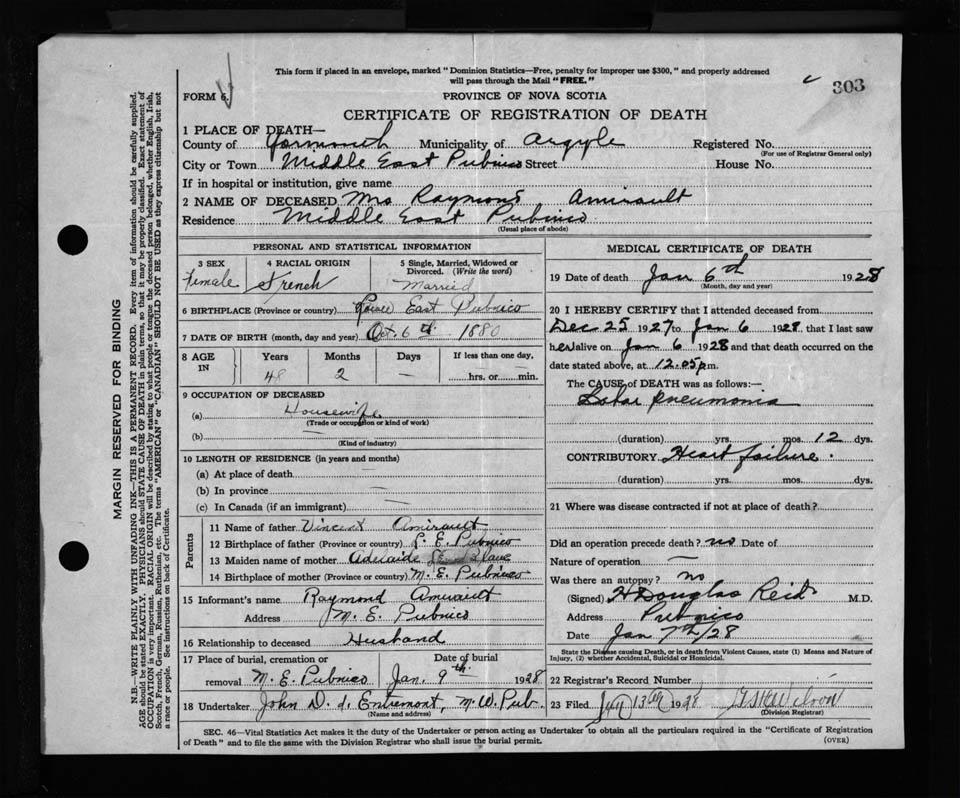 This form if placed in an envelope, marked "Dominion Statistics—Free, penalty for improper use $300," and properly addressed
will pass through the Mail "FREE."
303
FORM 6.
PROVINCE OF NOVA SCOTIA
CERTIFICATE OF REGISTRATION OF DEATH
1 PLACE OF DEATH—
County of Yarmouth Municipality of Argyle Registered No.
(For use of Registrar General only)
City or Town Middle East Pubnico Street House No.
If in hospital or institution, give name
2 NAME OF DECEASED Mrs Raymond Amirault
Residence Middle East Pubnico
(Usual place of abode)
PERSONAL AND STATISTICAL INFORMATION
3 SEX 4 RACIAL ORIGIN 5 Single, Married, Widowed or
Divorced. (Write the word)
Female French Married
6 BIRTHPLACE (Province or country) East Pubnico
7 DATE OF BIRTH (month, day and year) Oct. 6th 1880
8 AGE IN Years Months Days If less than one day,
48 2 — hrs. or min.
9 OCCUPATION OF DECEASED
(a) Housewife
(Trade or occupation or kind of work)
(b) —
(Kind of industry)
10 LENGTH OF RESIDENCE (in years and months)
(a) At place of death
(b) In province —
(c) In Canada (if an immigrant) —
Parents
11 Name of father Vincent Amirault
12 Birthplace of father (Province or country) L. E. Pubnico
13 Maiden name of mother Adelaide
14 Birthplace of mother (Province or country) M. E. Pubnico
15 Informant's name Raymond Amirault
Address M. E. Pubnico
16 Relationship to deceased Husband
17 Place of burial, cremation or Date of burial
removal M. E. Pubnico Jan. 9th 1928
18 Undertaker John D. d'Entremont, M. W. Pub.
(Name and address)
MEDICAL CERTIFICATE OF DEATH
19 Date of death Jan 6th 1928
(Month, day and year)
20 I HEREBY CERTIFY that I attended deceased from
Dec 25 1927 to Jan 6 1928, that I last saw
her alive on Jan 6 1928 and that death occurred on the
date stated above, at 12.05 p.m.
The CAUSE of DEATH was as follows:—
Lobar pneumonia
(duration) yrs. mos. 12 dys.
CONTRIBUTORY Heart failure.
(duration) yrs. mos. dys.
21 Where was disease contracted if not at place of death?
Did an operation precede death? no Date of
Nature of operation —
Was there an autopsy? no
(Signed) H Douglas Reid M.D.
Address Pubnico
Date Jan 7th/28
State the Disease causing Death, or in death from Violent Causes, state (1) Means and Nature of
Injury, (2) whether Accidental, Suicidal or Homicidal.
22 Registrar's Record Number
23 Filed Jan 13th 1928
(Division Registrar)
SEC. 46—Vital Statistics Act makes it the duty of the Undertaker or person acting as Undertaker to obtain all the particulars required in the "Certificate of Registration
of Death" and to file the same with the Division Registrar who shall issue the burial permit.
(OVER)
MARGIN RESERVED FOR BINDING
N.B.—WRITE PLAINLY WITH UNFADING INK—THIS IS A PERMANENT RECORD. Every item of information should be carefully supplied.
AGE should be stated EXACTLY. PHYSICIANS should STATE CAUSE OF DEATH in plain terms, so that it may be properly classified. Exact statement of
OCCUPATION is very important. RACIAL ORIGIN will be described by stating to what people or tongue the deceased person belonged, whether English, Irish,
Scotch, French, German, Russian, Ruthenian, etc. The terms "AMERICAN" or "CANADIAN" SHOULD NOT BE USED as they express citizenship but not
a race or people. See instructions on back of Certificate.